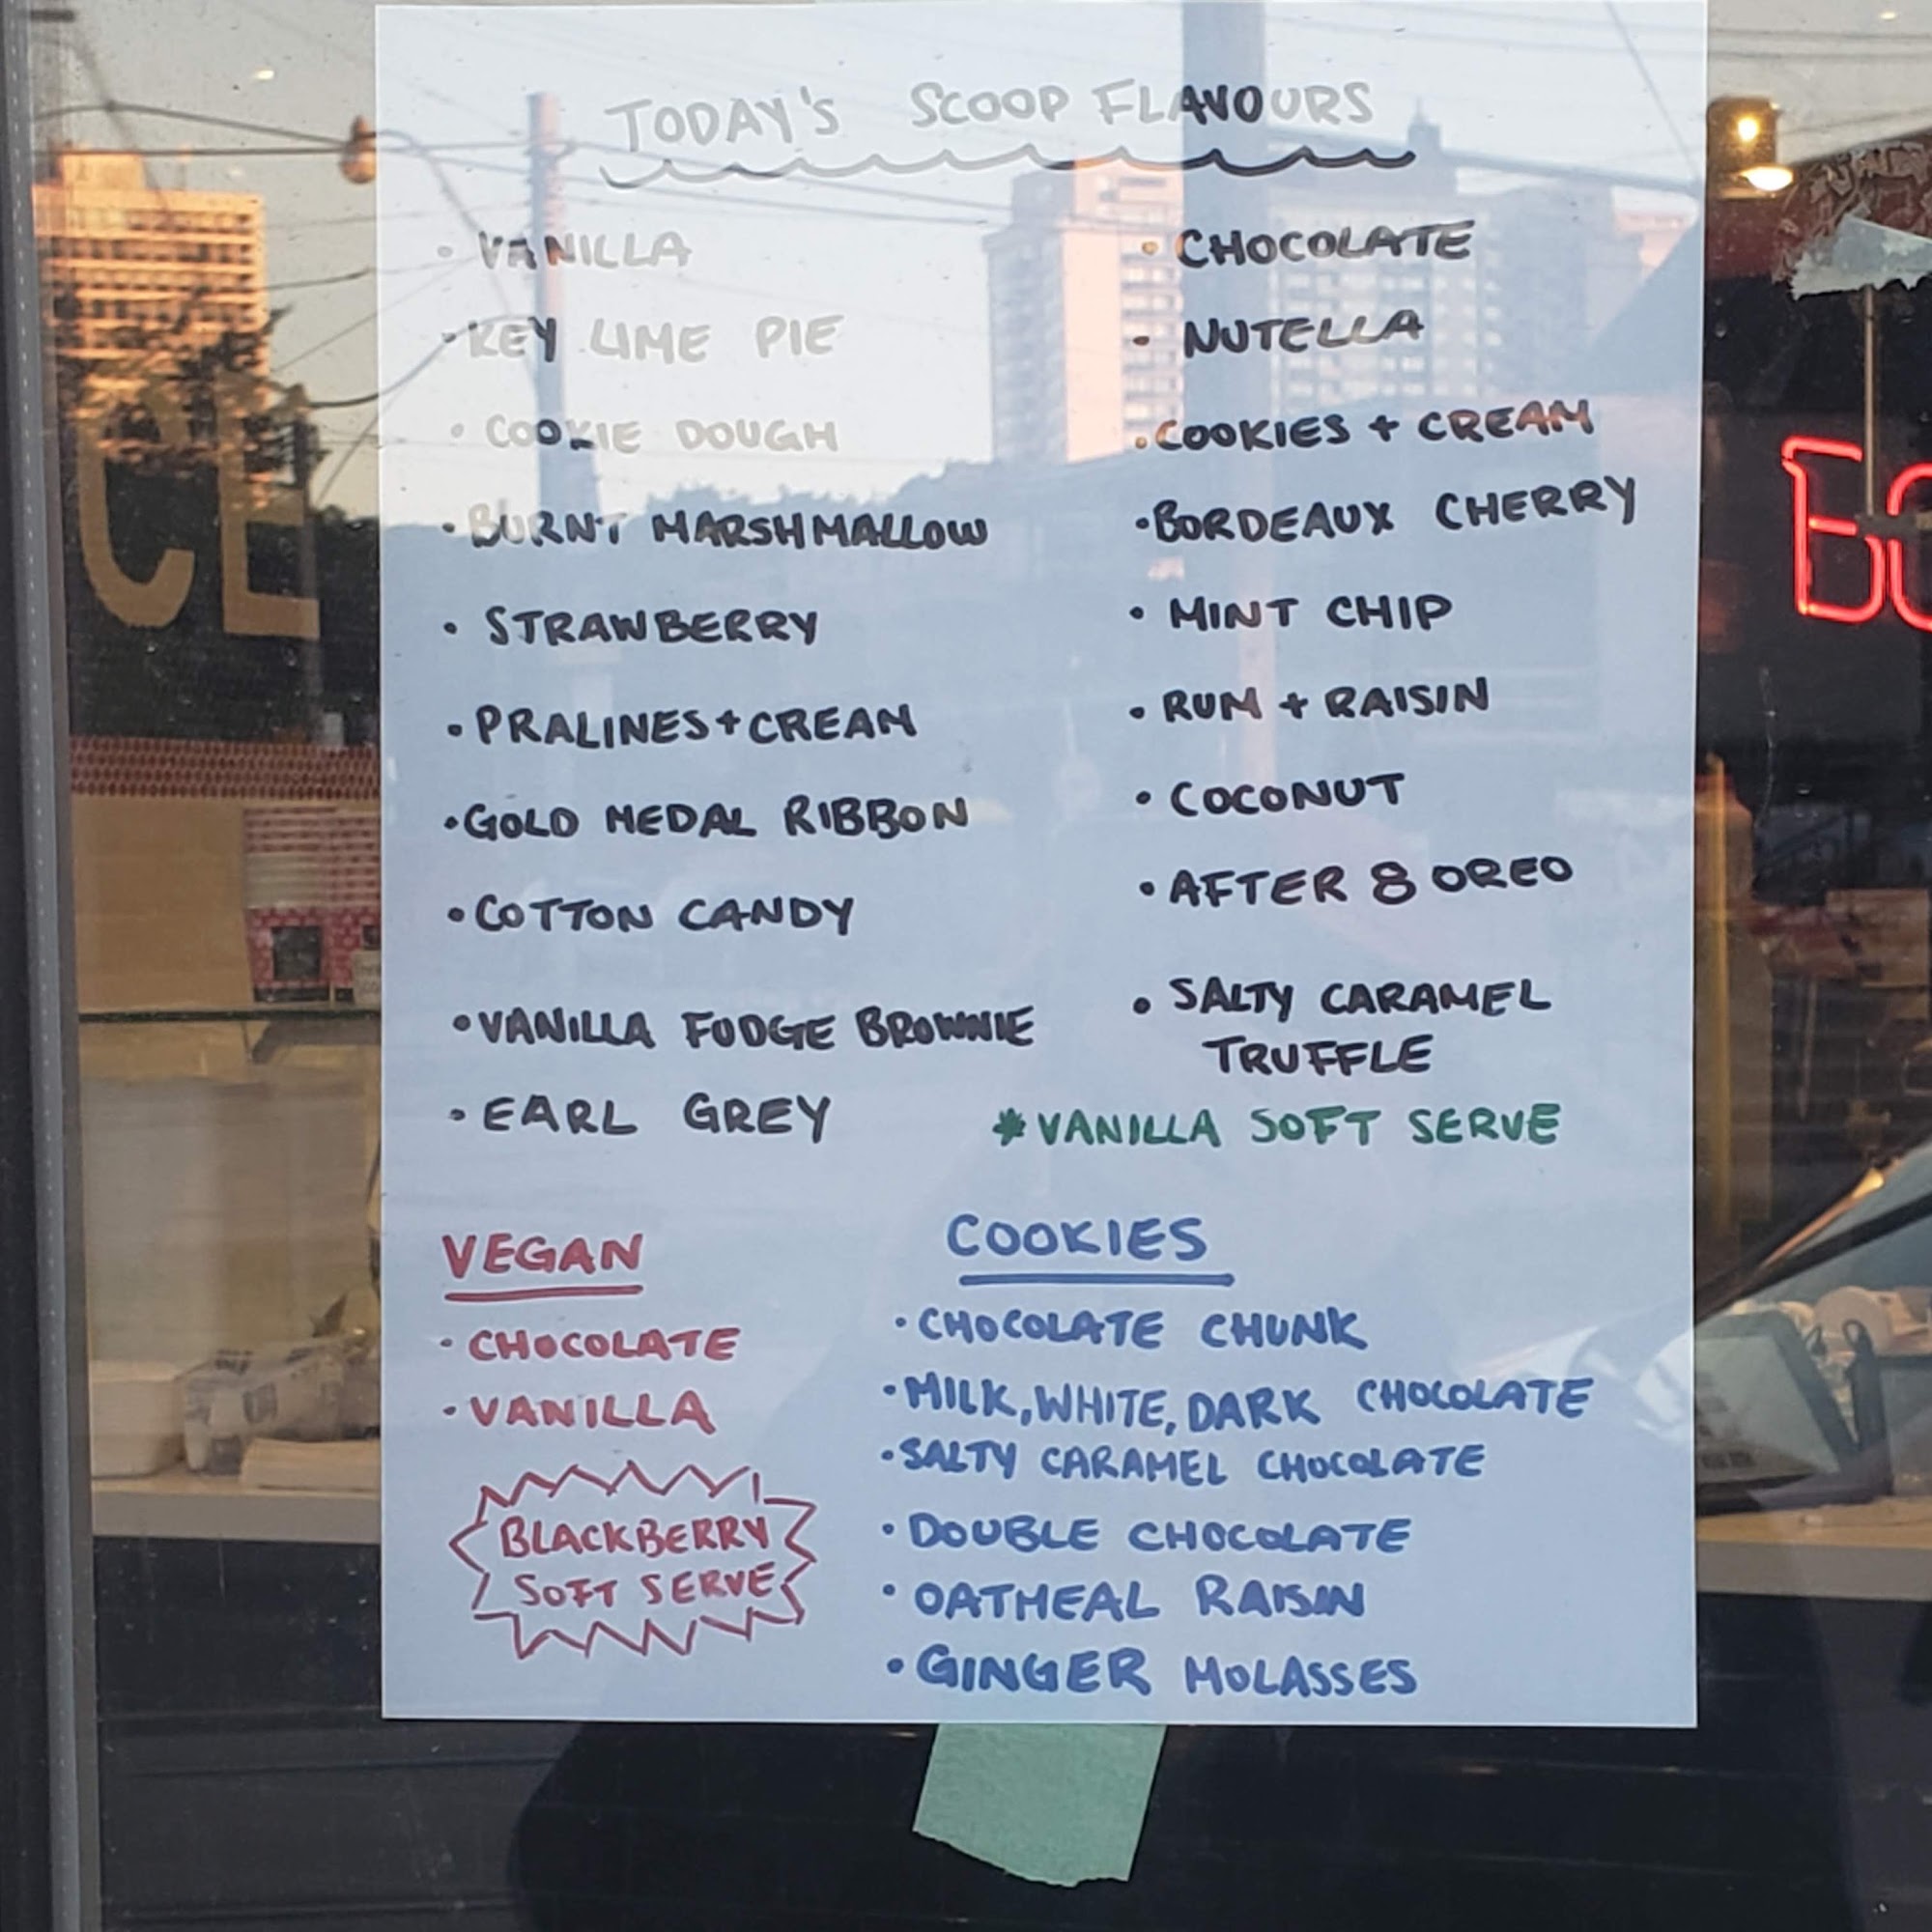 TODAY'S SCOOP FLAVOURS
• VANILLA
• KEY LIME PIE
• COOKIE DOUGH
• BURNT MARSHMALLOW
• STRAWBERRY
• PRALINES + CREAM
• GOLD MEDAL RIBBON
• COTTON CANDY
• VANILLA FUDGE BROWNIE
• EARL GREY
• CHOCOLATE
• NUTELLA
• COOKIES + CREAM
• BORDEAUX CHERRY
• MINT CHIP
• RUM + RAISIN
• COCONUT
• AFTER 8 OREO
• SALTY CARAMEL
TRUFFLE
* VANILLA SOFT SERVE
VEGAN
• CHOCOLATE
• VANILLA
BLACKBERRY
SOFT SERVE
COOKIES
• CHOCOLATE CHUNK
• MILK, WHITE, DARK CHOCOLATE
• SALTY CARAMEL CHOCOLATE
• DOUBLE CHOCOLATE
• OATMEAL RAISIN
• GINGER MOLASSES
CE